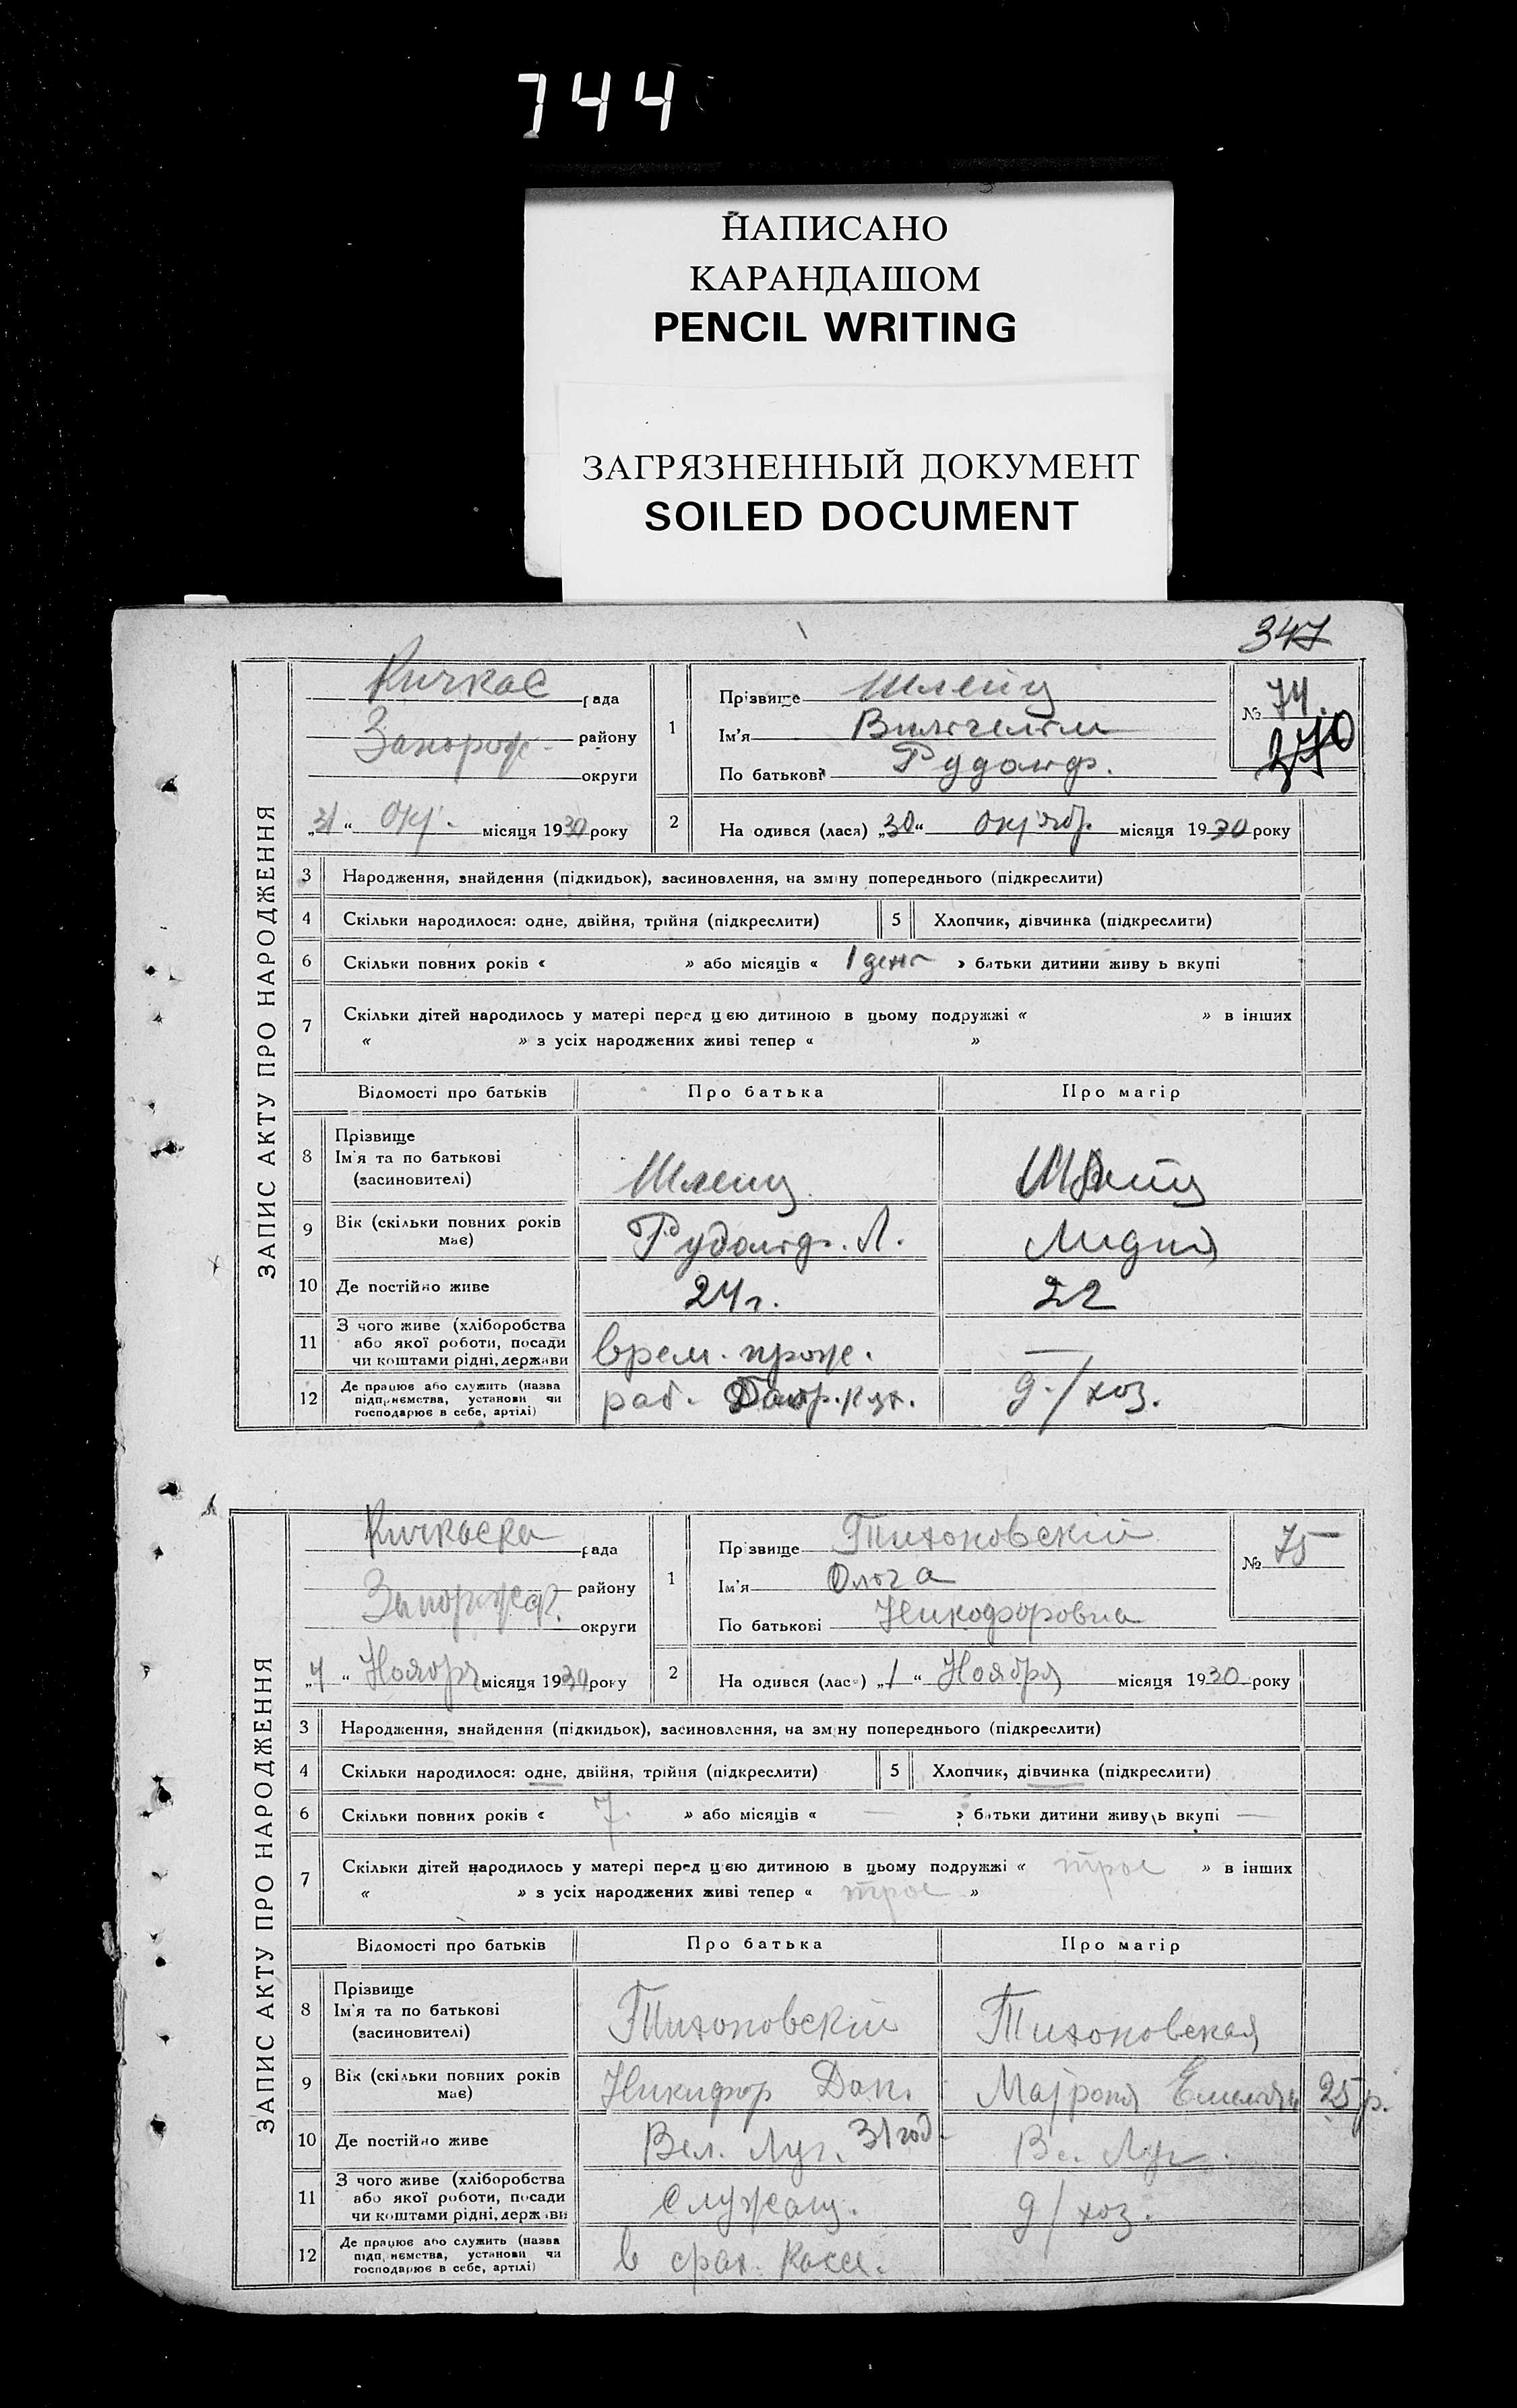 744
НАПИСАНО
КАРАНДАШОМ
PENCIL WRITING
ЗАГРЯЗНЕННЫЙ ДОКУМЕНТ
SOILED DOCUMENT
347
ЗАПИС АКТУ ПРО НАРОДЖЕННЯ
Кичкас рада
Запорож. району
округи
„31“ Окт. місяця 1930 року
1 Прізвище Шлейц
Ім'я Вильгельм
По батькові Рудольф.
№ 74.
270
2 На одився (лася) „30“ октябр. місяця 1930 року
3 Народження, знайдення (підкидьок), засиновлення, на зміну попереднього (підкреслити)
4 Скільки народилося: одне, двійня, трійня (підкреслити) 5 Хлопчик, дівчинка (підкреслити)
6 Скільки повних років « » або місяців « 1 день » батьки дитини живу ь вкупі
7 Скільки дітей народилось у матері перед цією дитиною в цьому подружжі « » в інших
« » з усіх народжених живі тепер « »
Відомості про батьків Про батька Про матір
8 Прізвище
Ім'я та по батькові
(засиновителі) Шлейц Шлейц
9 Вік (скільки повних років
має) Рудольф. Л. Лидия
10 Де постійно живе 24 г. 22
11 З чого живе (хліборобства
або якої роботи, посади
чи коштами рідні, держави врем. прож. —
12 Де працює або служить (назва
підприємства, установи чи
господарює в себе, артілі) раб. д./хоз.
ЗАПИС АКТУ ПРО НАРОДЖЕННЯ
Кичкаска рада
району
округи
„4“ Ноября місяця 1930 року
1 Прізвище Тихоновскій
Ім'я Ольга
По батькові Никофоровна
№ 75
2 На одився (лася) „1“ Ноября місяця 1930 року
3 Народження, знайдення (підкидьок), засиновлення, на зміну попереднього (підкреслити)
4 Скільки народилося: одне, двійня, трійня (підкреслити) 5 Хлопчик, дівчинка (підкреслити)
6 Скільки повних років « 7. » або місяців « — » батьки дитини живу ь вкупі —
7 Скільки дітей народилось у матері перед цією дитиною в цьому подружжі « трое » в інших
« » з усіх народжених живі тепер « трое »
Відомості про батьків Про батька Про матір
8 Прізвище
Ім'я та по батькові
(засиновителі) Тихоновскій Тихоновская
9 Вік (скільки повних років
має) Никифор Дан. Матрона Емельян 25 р.
10 Де постійно живе Вел. Луг. 31 год. Ве. Луг.
11 З чого живе (хліборобства
або якої роботи, посади
чи коштами рідні, держави Служащ. д/хоз.
12 Де працює або служить (назва
підприємства, установи чи
господарює в себе, артілі) в страх. кассе.